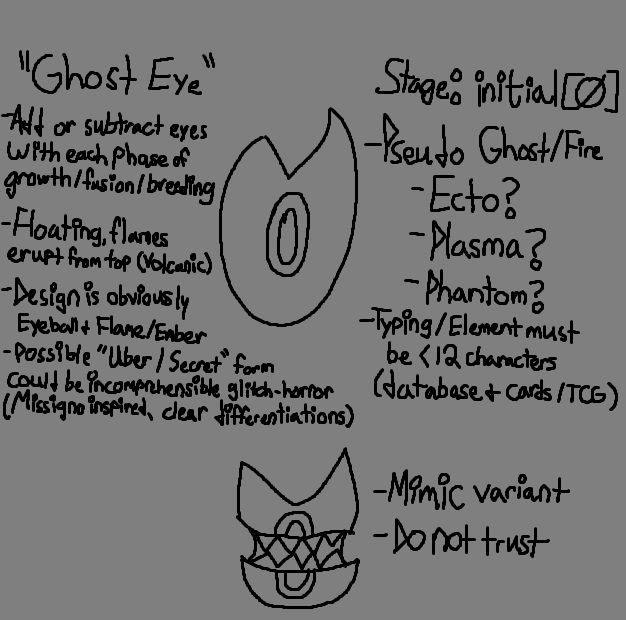 "Ghost Eye"
-Add or subtract eyes
with each phase of
growth/fusion/breeding
-Floating, flames
erupt from top (Volcanic)
-Design is obviously
Eyeball + Flame/Ember
-Possible "Uber/Secret" form
could be incomprhensible glitch-horror
(Missigno inspired, clear differentiations)
Stage: initial [Ø]
-Pseudo Ghost/Fire
-Ecto?
-Plasma?
-Phantom?
-Typing/Element must
be <12 characters
(database + cards/TCG)
-Mimic variant
-Do not trust